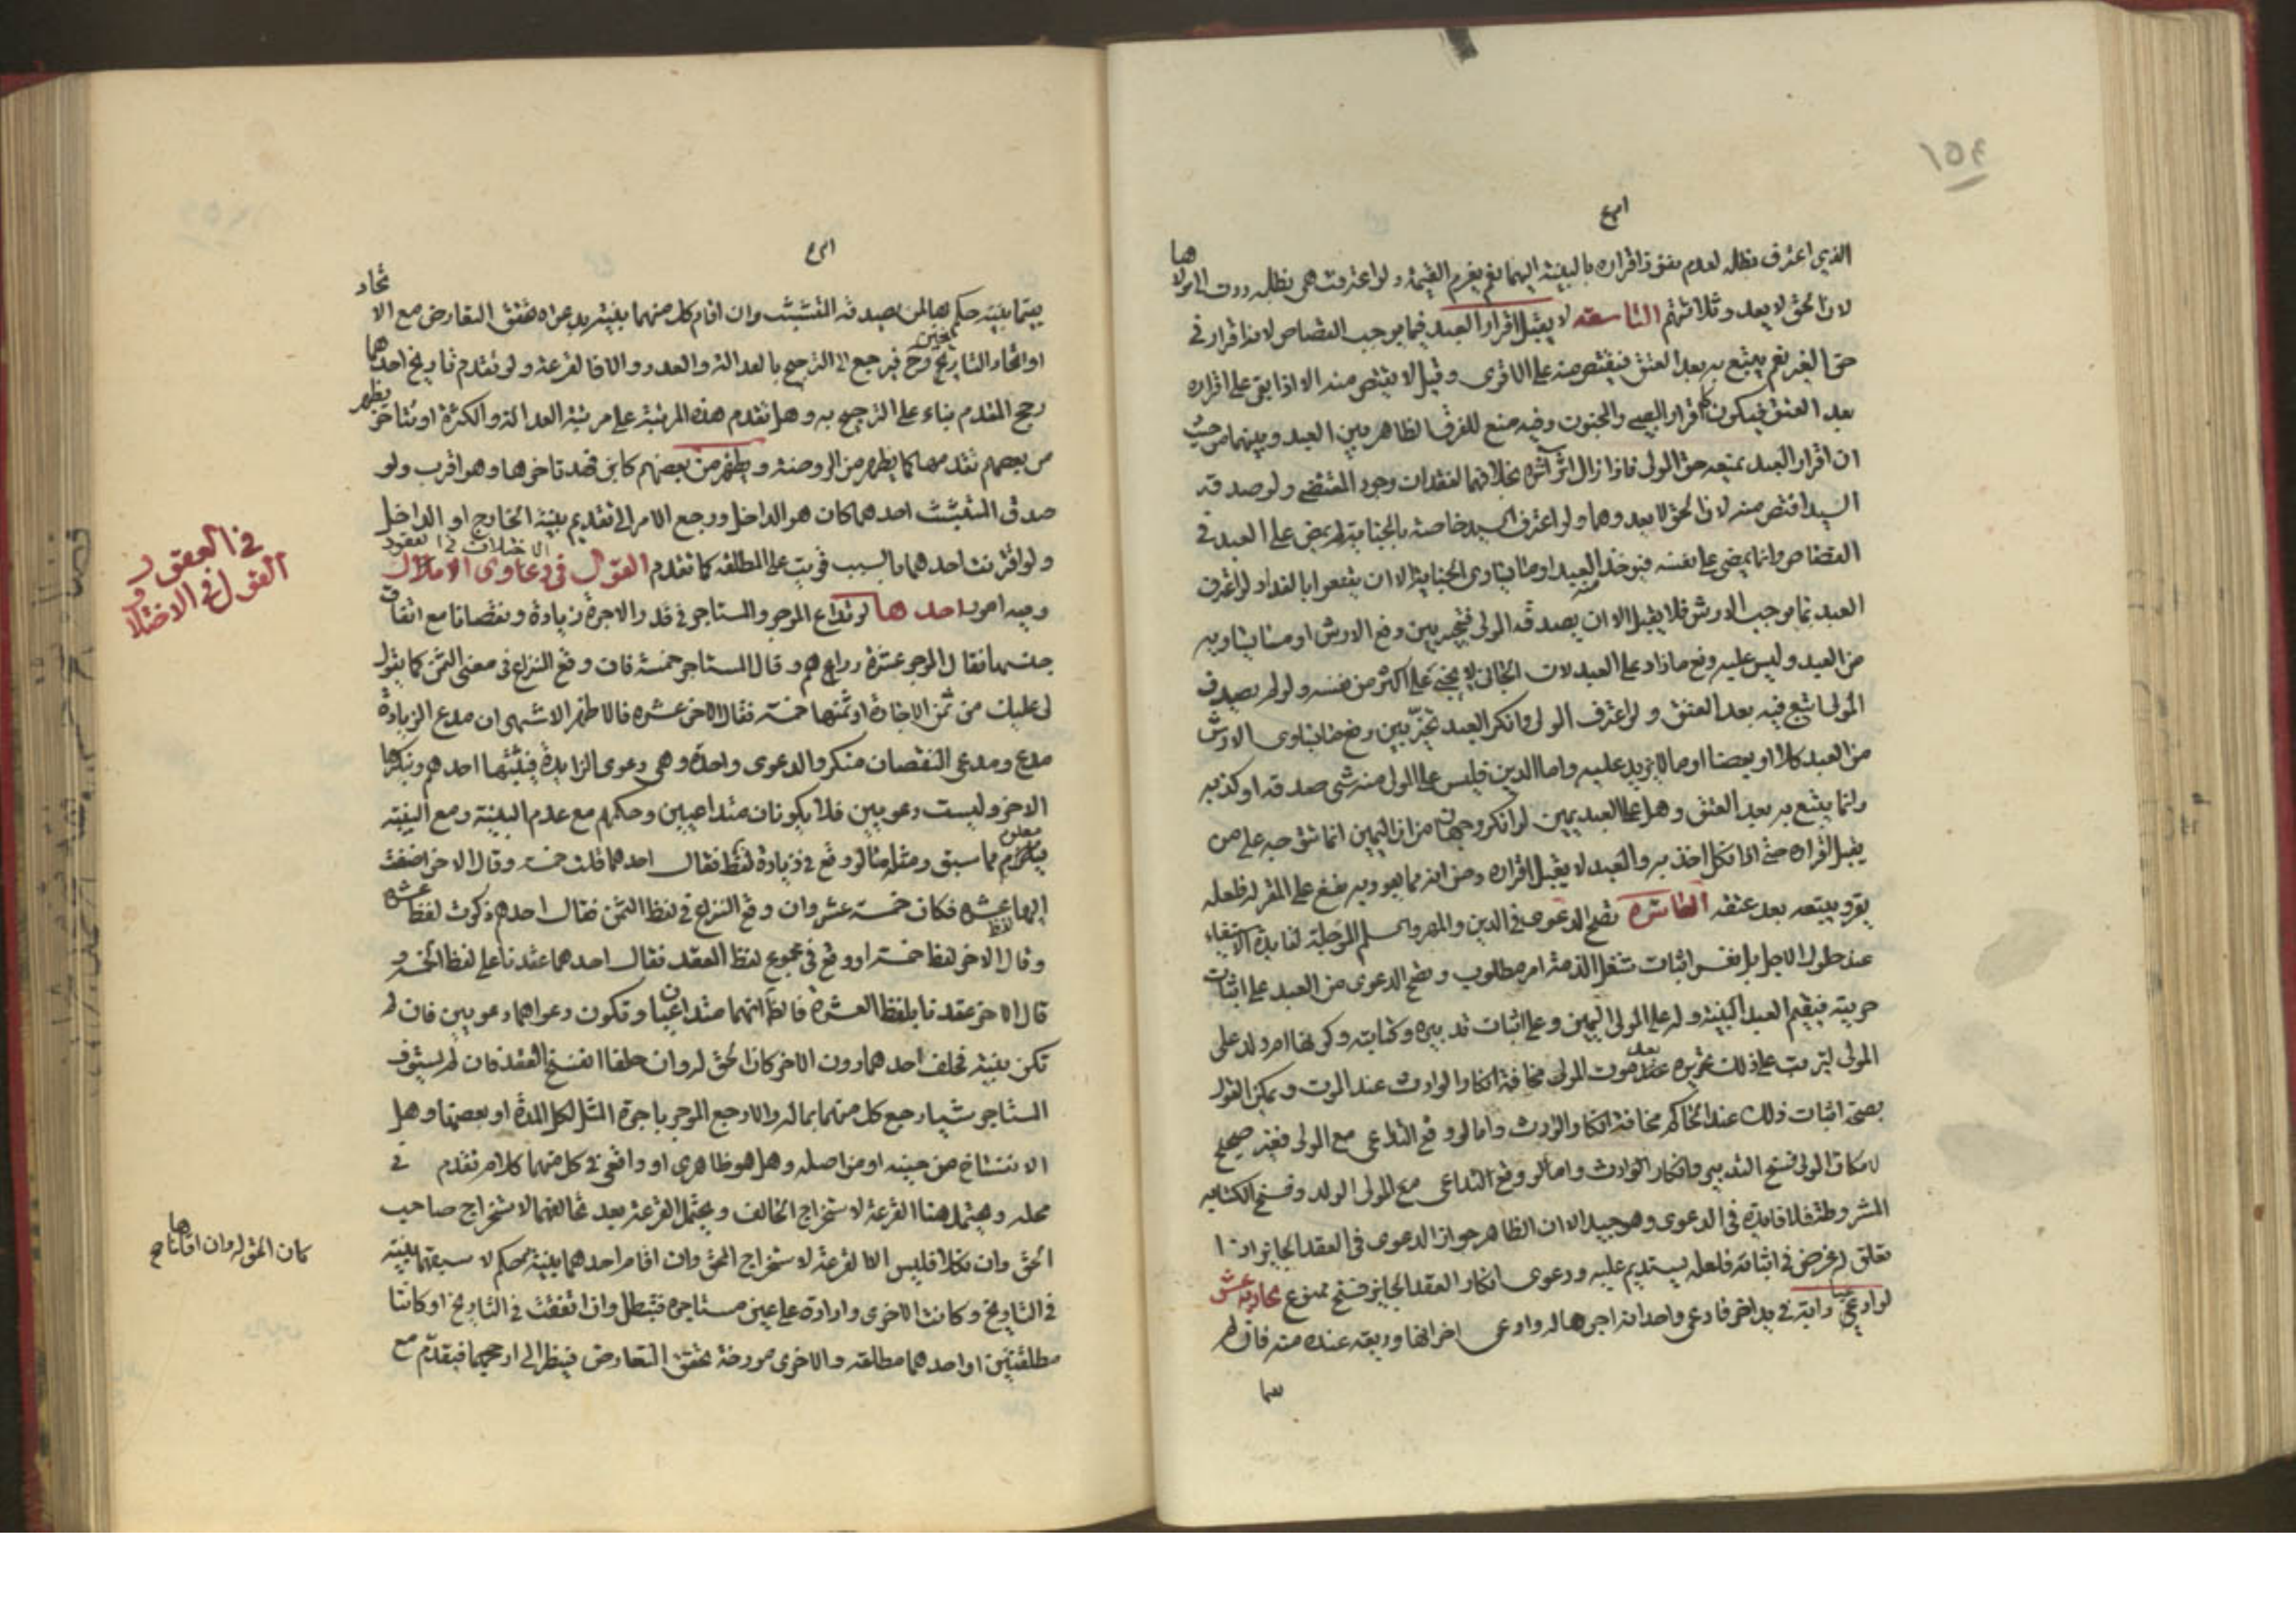 ١٥٤
الذي اعترف بظلمه لعدم نفوذ اقراره بالبينة اليهما نعم يغرم القيمة ولو اعترفت هي بظلمه ردت الى مولاها
لان الحق لا يعدو ثلاثتهم التاسعة لا يقبل اقرار العبد فيما يوجب القصاص لانه اقرار في
حق الغير نعم يتبع به بعد العتق فيقتص منه على الاقوى وقيل لا يقتص منه الا اذا بقي على اقراره
بعد العتق فيكون كاقرار الصبي والمجنون وفيه منع للفرق الظاهر بين العبد وبينهما من حيث
ان اقرار العبد يمنعه حق المولى فاذا زال اثر اثره بخلافهما لفقدان وجود المقتضي ولو صدقه
السيد اقتص منه لان الحق لا يعدوهما ولو اعترف السيد خاصة بالجناية لم يمض على العبد في
القصاص وانما يمضي على نفسه فيؤخذ العبد او ما يساوي الجناية الا ان يقنعوا بالفداء ولو اعترف
العبد بما يوجب الارش فلا يقبل الا ان يصدقه المولى فيتخير بين دفع الارش او ما يساويه
من العبد وليس عليه دفع ما زاد على العبد لان الجاني لا يجني على اكثر من نفسه ولو لم يصدق
المولى اتبع فيه بعد العتق ولو اعترف المولى وانكر العبد تخير بين دفع ما يساوي الارش
من العبد كلا او بعضا او ما لا يزيد عليه واما الدين فليس على المولى منه شي صدقه او كذبه
وانما يتبع به بعد العتق وهل على العبد يمين لو انكر وجهان من ان اليمين انما تتوجه على من
يقبل اقراره حتى اذا نكل اخذ به والعبد لا يقبل اقراره ومن انه مما يعود به نفع على المقر له فلعله
يقر ويتبعه بعد عتقه العاشرة تصح الدعوى في الدين والمهر والسلم المؤجلة لفايدة الاستيفاء
عند حلول الاجل بل نفس اثبات شغل الذمة امر مطلوب وتصح الدعوى من العبد على اثبات
حريته فيقيم العبد البينة وله على المولى اليمين وعلى اثبات تدبيره وكتابته وكونها ام ولد على
المولى ليترتب على ذلك تحريره بعد موت المولى مخافة انكار الوارث عند الموت ويمكن القول
بصحة اثبات ذلك عند الحاكم مخافة انكار الوارث واما لو وقع التداعي مع المولى فغير صحيح
لامكان المولى فسخ التدبير وانكار الوارث واما لو وقع التداعي مع المولى الولد وفسخ الكتابة
المشروطة فلا فايدة في الدعوى وهو جيد الا ان الظاهر جواز الدعوى في العقد الجايز اذا
تعلق له غرض في اثباته فلعله يستديم عليه ودعوى انكار العقد الجايز فسخ ممنوع حادية عشر
لو ادعى دابة في يد اخر فادعى واحد انه اجرها له وادعى اخر انها وديعة عنده منه فان لم
يقيما بينة حكم بها لمن يصدقه المتشبث وان اقام كل منهما بينة بدعواه تحقق التعارض مع الاتحاد
او اتحاد التاريخ وح فيرجع الى الترجيح بالعدالة والعدد والا فالقرعة ولو تقدم تاريخ احدهما
رجح المقدم بناء على الترجيح به وهل تقدم هذه المرتبة على مرتبة العدالة والكثرة او تتاخر يظهر
من بعضهم تقدمها كما يظهر من الروضة ويظهر من بعضهم كابن فهد تاخرها وهو اقرب ولو
صدق المتشبث احدهما كان هو الداخل ورجع الامر الى تقديم بينة الخارج او الداخل
ولو اقترنت احدهما بالسبب قويت على المطلقة كما تقدم القول في دعاوى الاملاك
الاختلاف في العقود
وفيه امور احدها لو تداعى الموجر والمستاجر في قدر الاجرة زيادة ونقصانا مع اتفاق
جنسها فقال الموجر عشرة دراهم وقال المستاجر خمسة فان وقع النزاع في معنى الثمن كما يقول
لي عليك من ثمن الاجارة او ثمنها خمسة فقال الاخر عشرة فالاظهر الاشهر ان مدع الزيادة
مدع ومدعي النقصان منكر والدعوى واحدة وهي دعوى الزايدة فيثبتها احدهم وينكرها
الاخر وليست دعويين فلا يكونان متداعيين وحكمهم مع عدم البينة ومع البينة
معلوم مما سبق ومثله ما لو وقع في زيادة لفظ فقال احدهما قلت خمسة وقال الاخر اضفت
اليها عشرة فكان خمسة عشر وان وقع النزاع في لفظ الثمن فقال احدهم ذكرت لفظ عشرة
وقال الاخر لفظ خمسة او وقع في مجموع لفظ العقد فقال احدهما عقدنا على لفظ الخمسة و
قال الاخر عقدنا بلفظ العشرة فالظ انهما متداعيان وتكون دعواهما دعويين فان لم
تكن بينة فحلف احدهما دون الاخر كان الحق له وان حلفا انفسخ العقد فان لم يستوف
المستاجر شيئا رجع كل منهما بماله والا رجع الموجر باجرة المثل لكل المدة او بعضها وهل
الانفساخ من حينه او من اصله وهل هو ظاهري او واقعي في كل منهما كلام تقدم في
محله ويحتمل هنا القرعة لاستخراج الحالف ويحتمل القرعة بعد تحالفهما لاستخراج صاحب
الحق وان نكلا فليس الا القرعة لاستخراج المحق وان اقام احدهما بينة حكم لا سبقهما بينة
في التاريخ وكانت الاخرى واردة على عين مستاجرة فتبطل وان اتفقت في التاريخ او كانتا
مطلقتين او احدهما مطلقة والاخرى مورخة تحقق التعارض فينظر الى ارجحهما فيقدم مع
القول في الاختلاف
في العقود
كان الحق له وان اقاماها